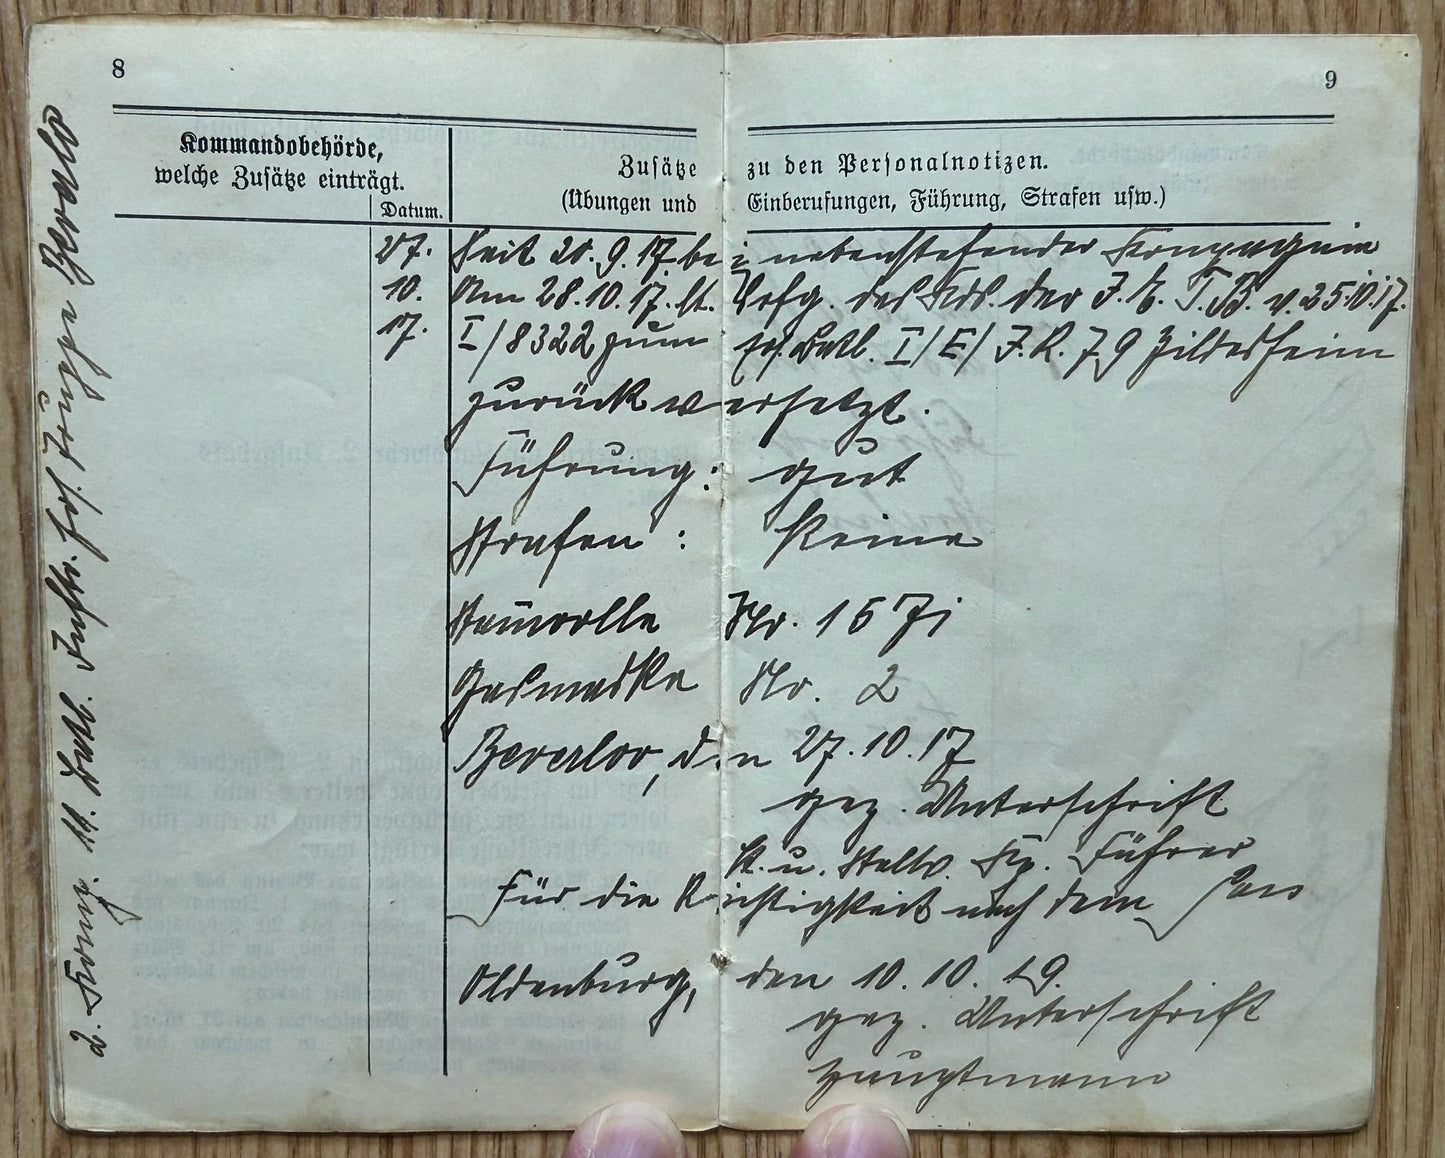 8
Kommandobehörde,
welche Zusätze einträgt.
Datum.
Zusätze
(Übungen und
9
zu den Personalnotizen.
Einberufungen, Führung, Strafen usw.)
2. Komp. 11. Batl. Inftr. Ers. Truppe Beverlo
27. Seit 20. 9. 17. bei nebenstehender Kompagnie
10. Am 28. 10. 17. lt. Verfg. des Kds. der I. E. T. B. v. 25.10.17.
17. I/8322 zum Ers. Batl. I/E/ I. R. 79 Hildesheim
zurück versetzt.
Führung: gut
Strafen: Keine
Stammrolle Nr. 157i
Gasmaske Nr. 2
Beverloo, den 27. 10. 17
gez. Unterschrift
Lt. u. stellv. Kp. Führer
Für die Richtigkeit nach dem Pass
Oldenburg, den 10. 10. 19.
gez. Unterschrift
Hauptmann